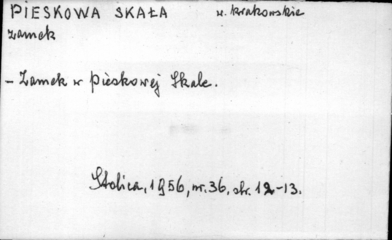 PIESKOWA SKAŁA w. krakowskie
zamek
– Zamek w Pieskowej Skale.
Stolica, 1956, nr. 36, str. 12-13.